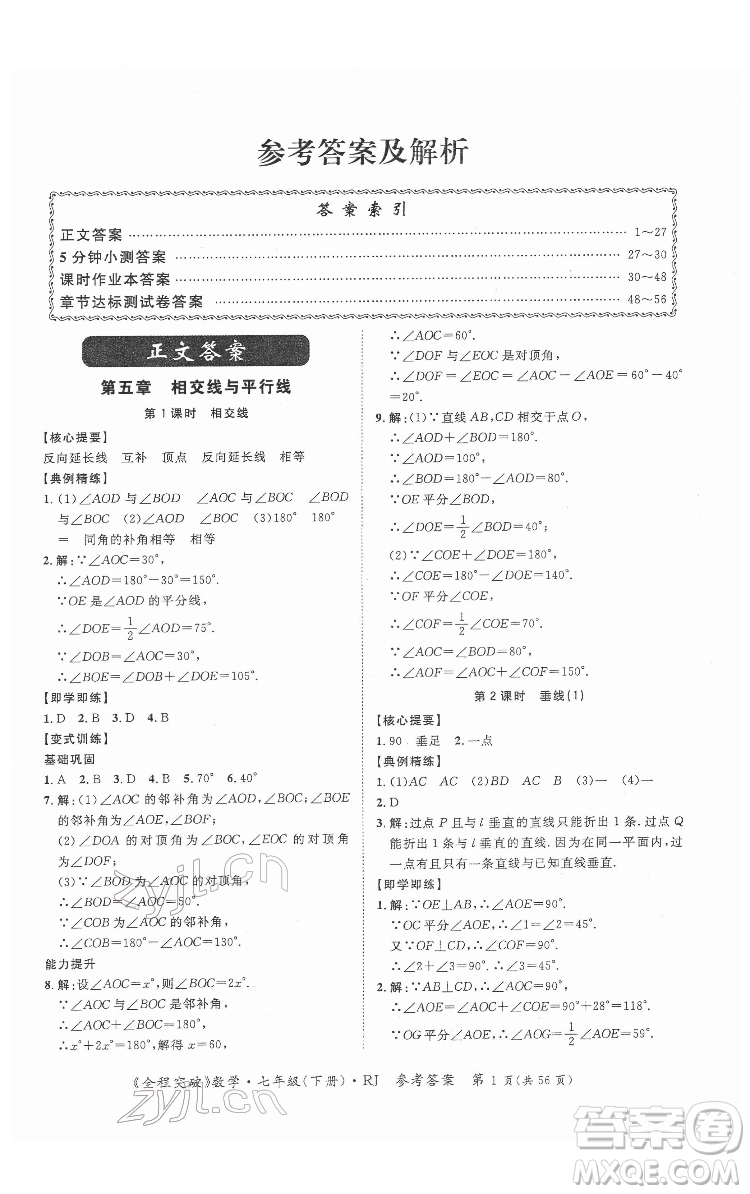 参考答案及解析
答案索引
正文答案 1～27
5分钟小测答案 27～30
课时作业本答案 30～48
章节达标测试卷答案 48～56
正文答案
第五章 相交线与平行线
第1课时 相交线
【核心提要】
反向延长线 互补 顶点 反向延长线 相等
【典例精练】
1.(1)∠AOD与∠BOD ∠AOC与∠BOC ∠BOD
与∠BOC (2)∠AOD ∠BOC (3)180° 180°
＝ 同角的补角相等 相等
2.解:∵∠AOC=30°,
∴∠AOD=180°－30°=150°.
∵OE是∠AOD的平分线,
∴∠DOE=1/2∠AOD=75°.
∵∠BOD=∠AOC=30°,
∴∠BOE=∠BOD+∠DOE=105°.
【即学即练】
1.D 2.B 3.D 4.B
【变式训练】
基础巩固
1.A 2.B 3.D 4.B 5.70° 6.40°
7.解:(1)∠AOC的邻补角为∠BOC和∠AOD;
(2)∠DOA的对顶角为∠COB,∠EOC的对顶角
为∠DOF;
(3)∵∠BOD为∠AOC的对顶角,
∴∠BOD=∠AOC=50°.
∵∠COB为∠AOC的邻补角,
∴∠COB=180°－∠AOC=130°.
能力提升
8.解:设∠AOC=x°,则∠BOC=2x°.
∵∠AOC与∠BOC是邻补角,
∴∠AOC+∠BOC=180°,
∴x°+2x°=180°,解得x=60,
∴∠AOC=60°.
∵∠DOF与∠EOC是对顶角,
∴∠DOF=∠EOC=∠AOC－∠AOE=60°－40°
=20°.
9.解:(1)∵直线AB,CD相交于点O,
∴∠AOD+∠BOD=180°.
∴∠BOD=180°－∠AOD=80°.
∵∠AOD=100°,
∵OE平分∠BOD,
∴∠DOE=1/2∠BOD=40°;
(2)∵∠COE+∠DOE=180°,
∴∠COE=180°－∠DOE=140°.
∵OF平分∠COE,
∴∠EOF=1/2∠COE=70°;
∵∠AOC=∠BOD=80°,
∴∠AOF=∠AOC+∠COF=150°.
第2课时 垂线(1)
【核心提要】
1.90 垂足 2.一点
【典例精练】
1.(1)AC AC AC (2)一 (3)一
2.D
3.解:过点P且与l垂直的直线只能折出1条.过点Q
能折出1条.理由如下:因为在同一平面内,过
一点有且只有一条直线与已知直线垂直.
【即学即练】
1.解:∵OE⊥AB,∴∠AOE=90°.
∵OC平分∠AOE,∴∠1=∠2=45°.
又∵OF⊥CD,∴∠FOC=90°,
∴∠2+∠3=90°,∴∠3=45°.
2.解:∵AB⊥CD,∴∠AOC=90°.
∴∠AOE=∠AOC+∠COE=90°+28°=118°.
∵OG平分∠AOE,∴∠AOG=1/2∠AOE=59°.
《全程突破》数学·七年级(下册)·RJ 参考答案 第1页(共56页)
zyjl.cn
zyjl.cn
答案圈
MXQE.COM